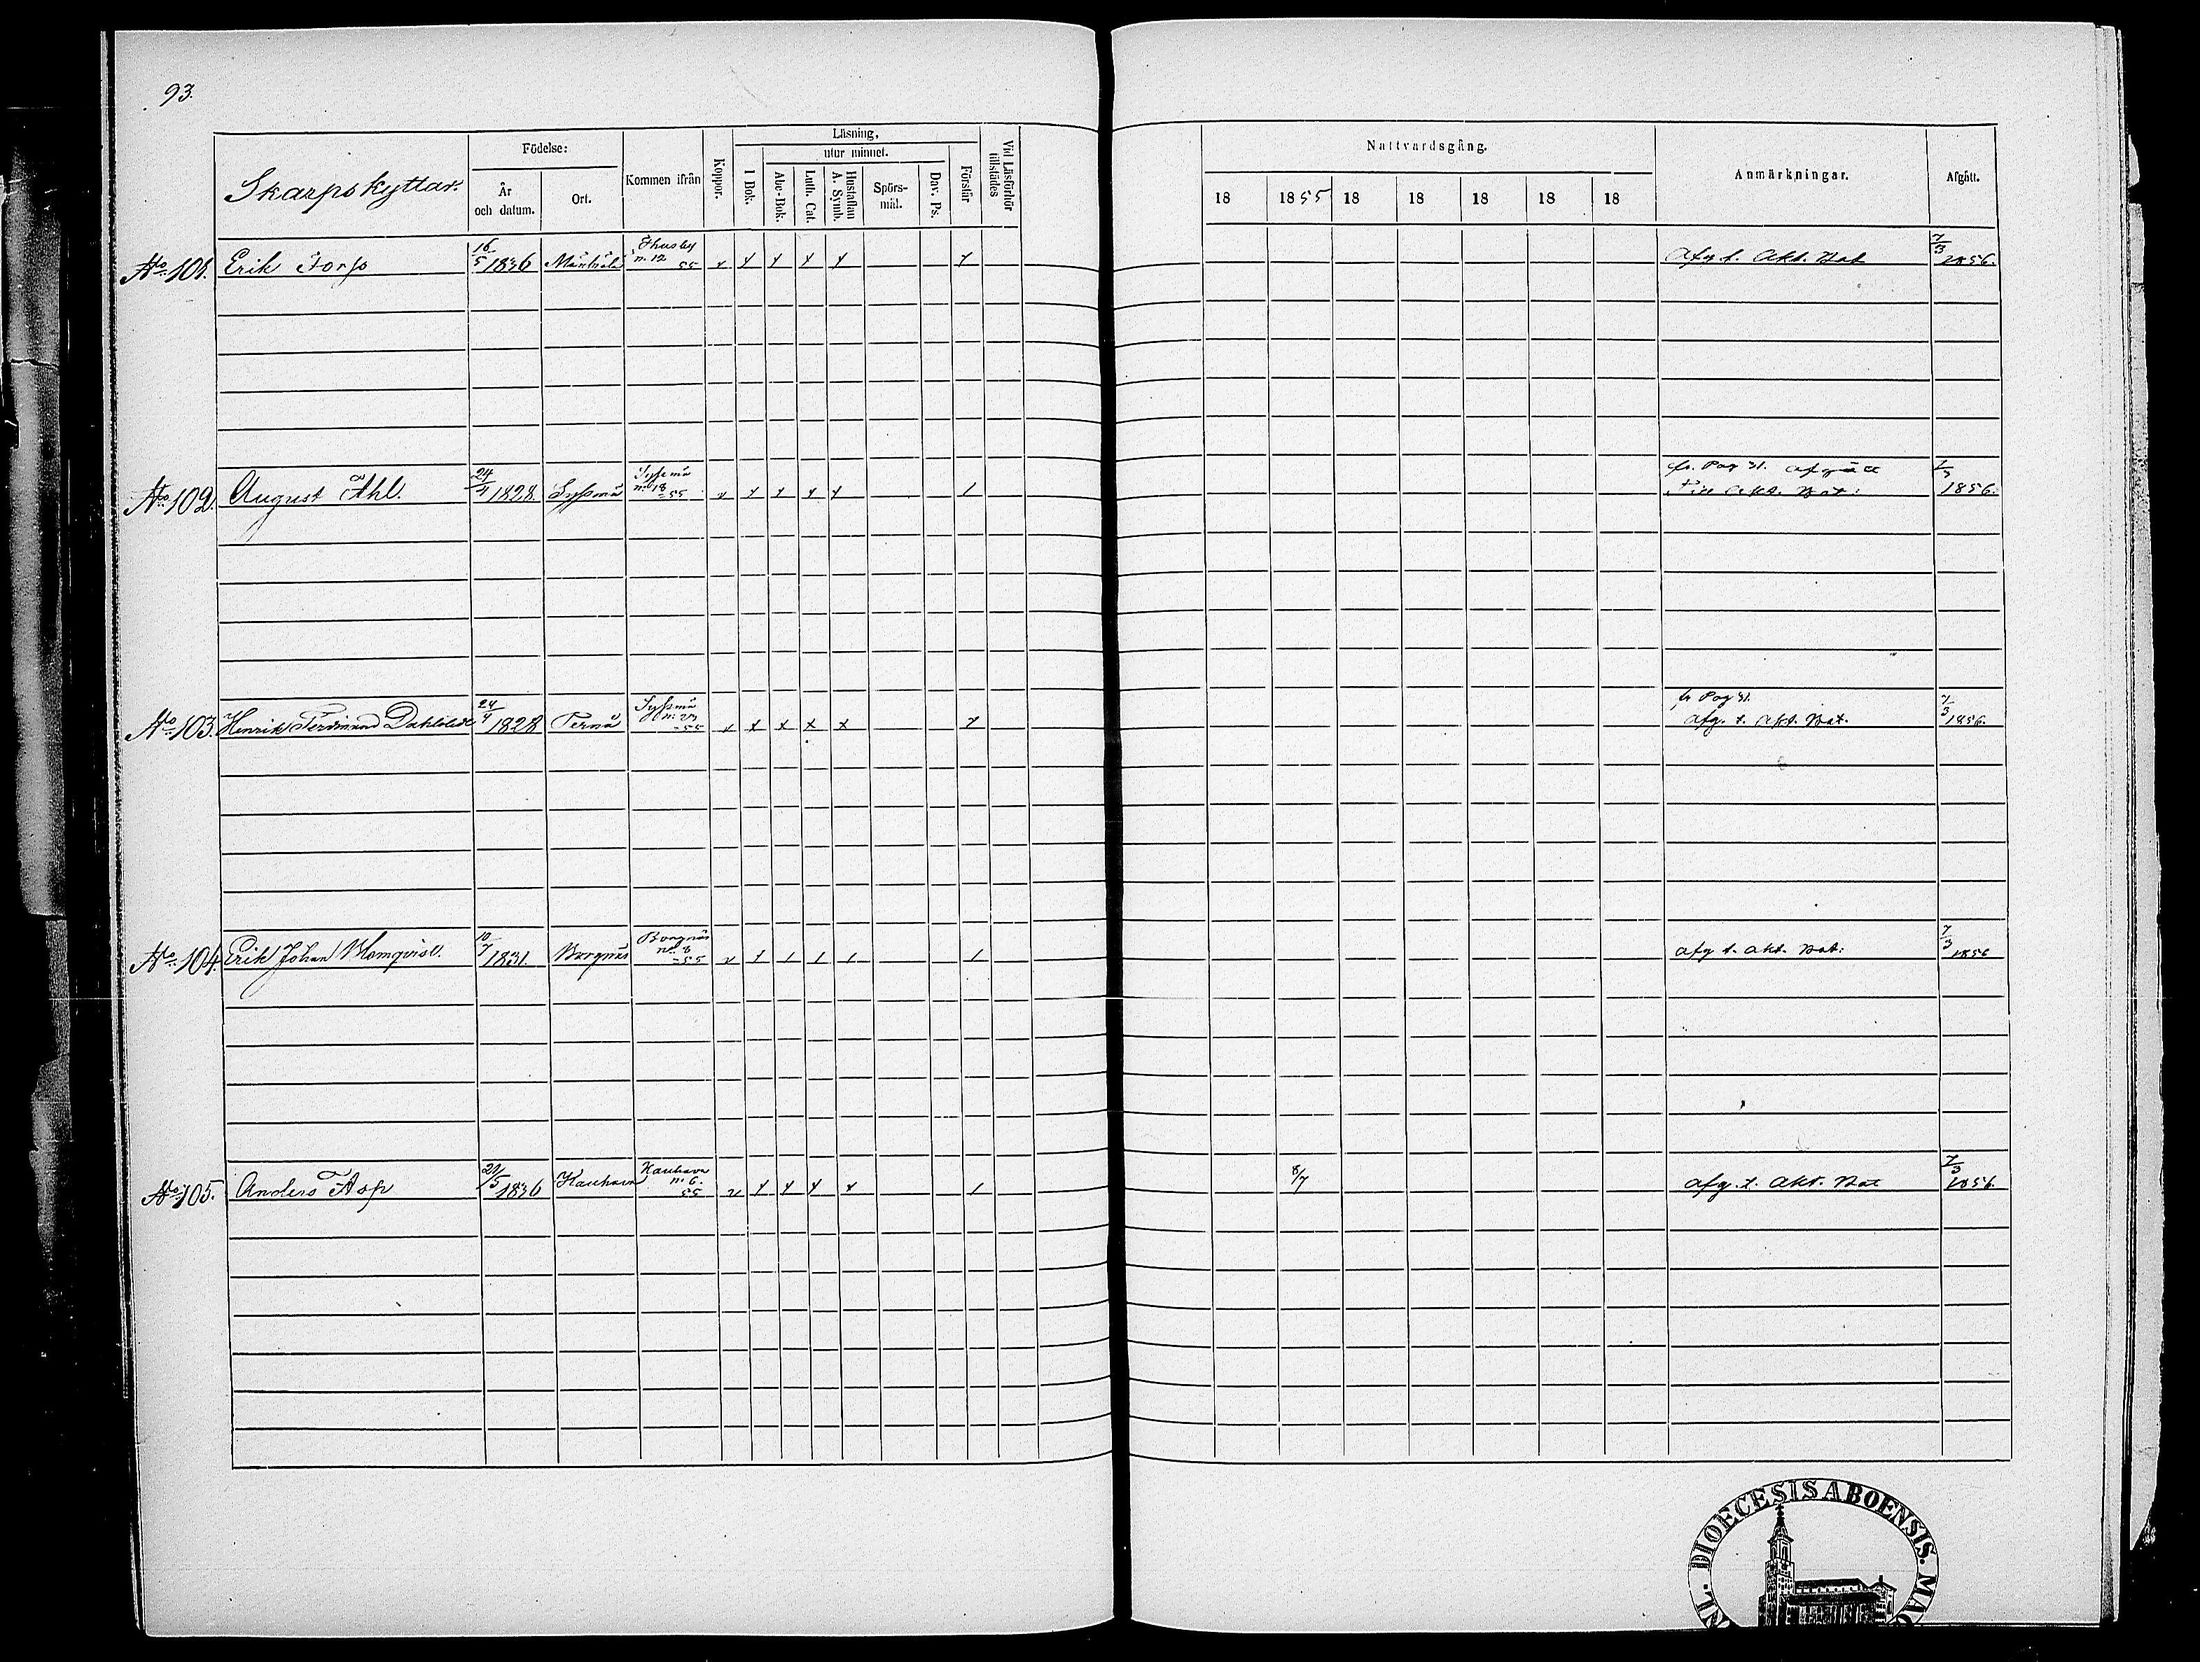 93.
Skarpskyttar.
Födelse:
År och datum.
Ort.
Kommen ifrån
Koppor.
Läsning,
utur minnet.
I Bok.
Abc-Bok.
Luth. Cat.
Hustaflan A. Symb.
Spörs-mål.
Dav. Ps.
Förstår
Vid Läsförhör tillstädes
Nattvardsgång.
18 1855 18 18 18 18 18
Anmärkningar.
Afgått.
No 101. Erik Torp 16/5 1836 Thusby n. 12 55 afg t. Akt. Bat 7/3 1856.
No 102. August Ahl. 24/4 1828. Syssmä Syssmä n. 18 -55 fr. Pag 31. afgått till Akt. Bat: 7/3 1856.
No 103. Henrik Ferdinand 24/4 1828 Pernå Syssmä n. 23 -55 fr Pag 31. afg. t. Akt. Bat. 7/3 1856.
No 104. Erik Johan Blomqvist. 10/7 1831. Borgnäs Borgnäs n. 8 -55 afg t. Akt. Bat: 7/3 1856
No 105. Anders Asp 21/5 1836 Kauhava Kauhava n. 6. 55 8/7 afg. t. Akt. Bat 7/3 1856.
DIOECESIS ABOENSIS. MAG